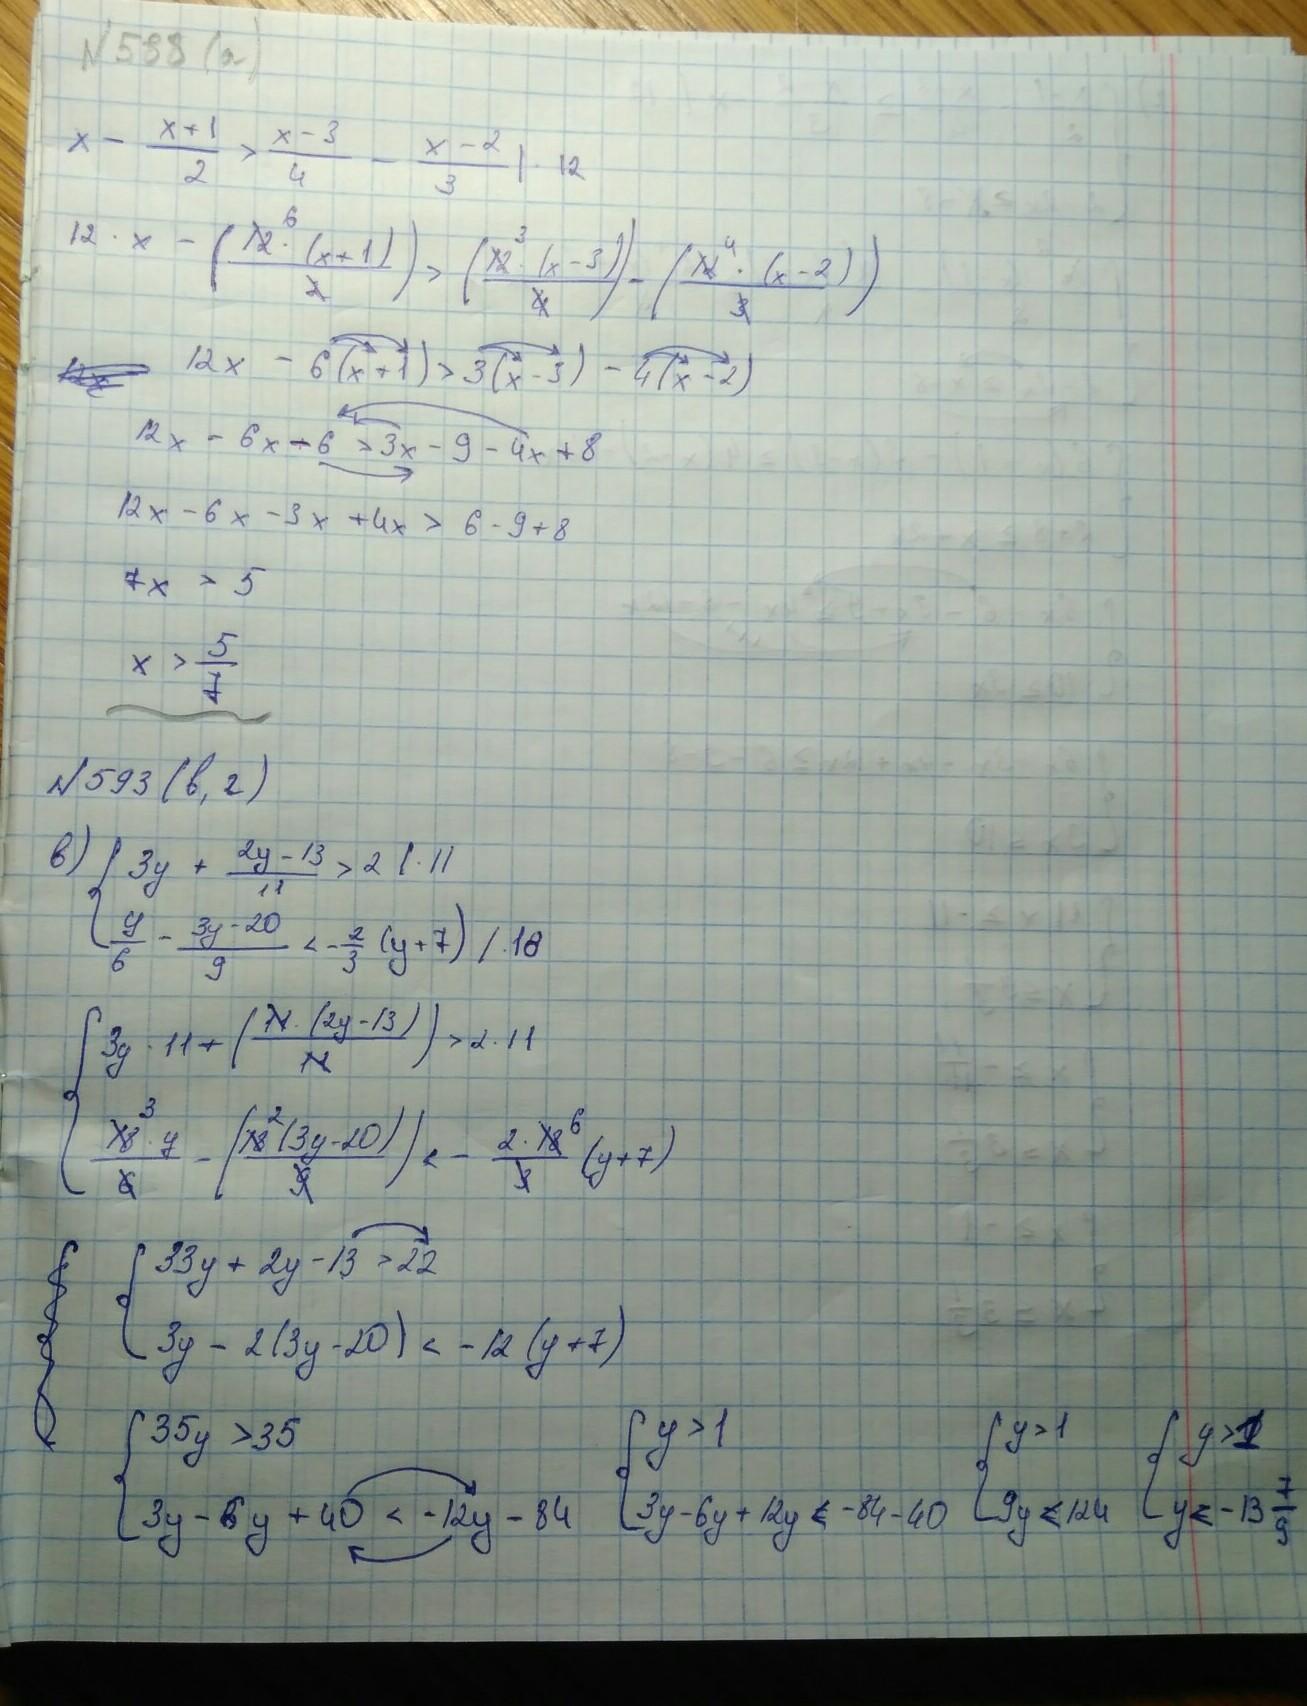 №588(а)
x - (x+1)/2 > (x-3)/4 - (x-2)/3 | · 12
12 · x - (12⁶ · (x+1)/2) > (12³ · (x-3)/4) - (12⁴ · (x-2)/3)
12x - 6(x+1) > 3(x-3) - 4(x-2)
12x - 6x - 6 > 3x - 9 - 4x + 8
12x - 6x - 3x + 4x > 6 - 9 + 8
7x > 5
x > 5/7
№593(в,г)
в) { 3y + (2y-13)/11 > 2 | · 11
y/6 - (3y-20)/9 < -2/3 (y+7) / · 18
{ 3y · 11 + (11 · (2y-13)/11) > 2 · 11
18³ · y/6 - (18² (3y-20)/9) < - 2 · 18⁶/3 (y+7)
{ 33y + 2y - 13 > 22
3y - 2(3y-20) < -12(y+7)
{ 35y > 35 { y > 1 { y > 1 { y > 1
3y - 6y + 40 < -12y - 84 3y - 6y + 12y < -84 - 40 9y < 124 y < -13 7/9